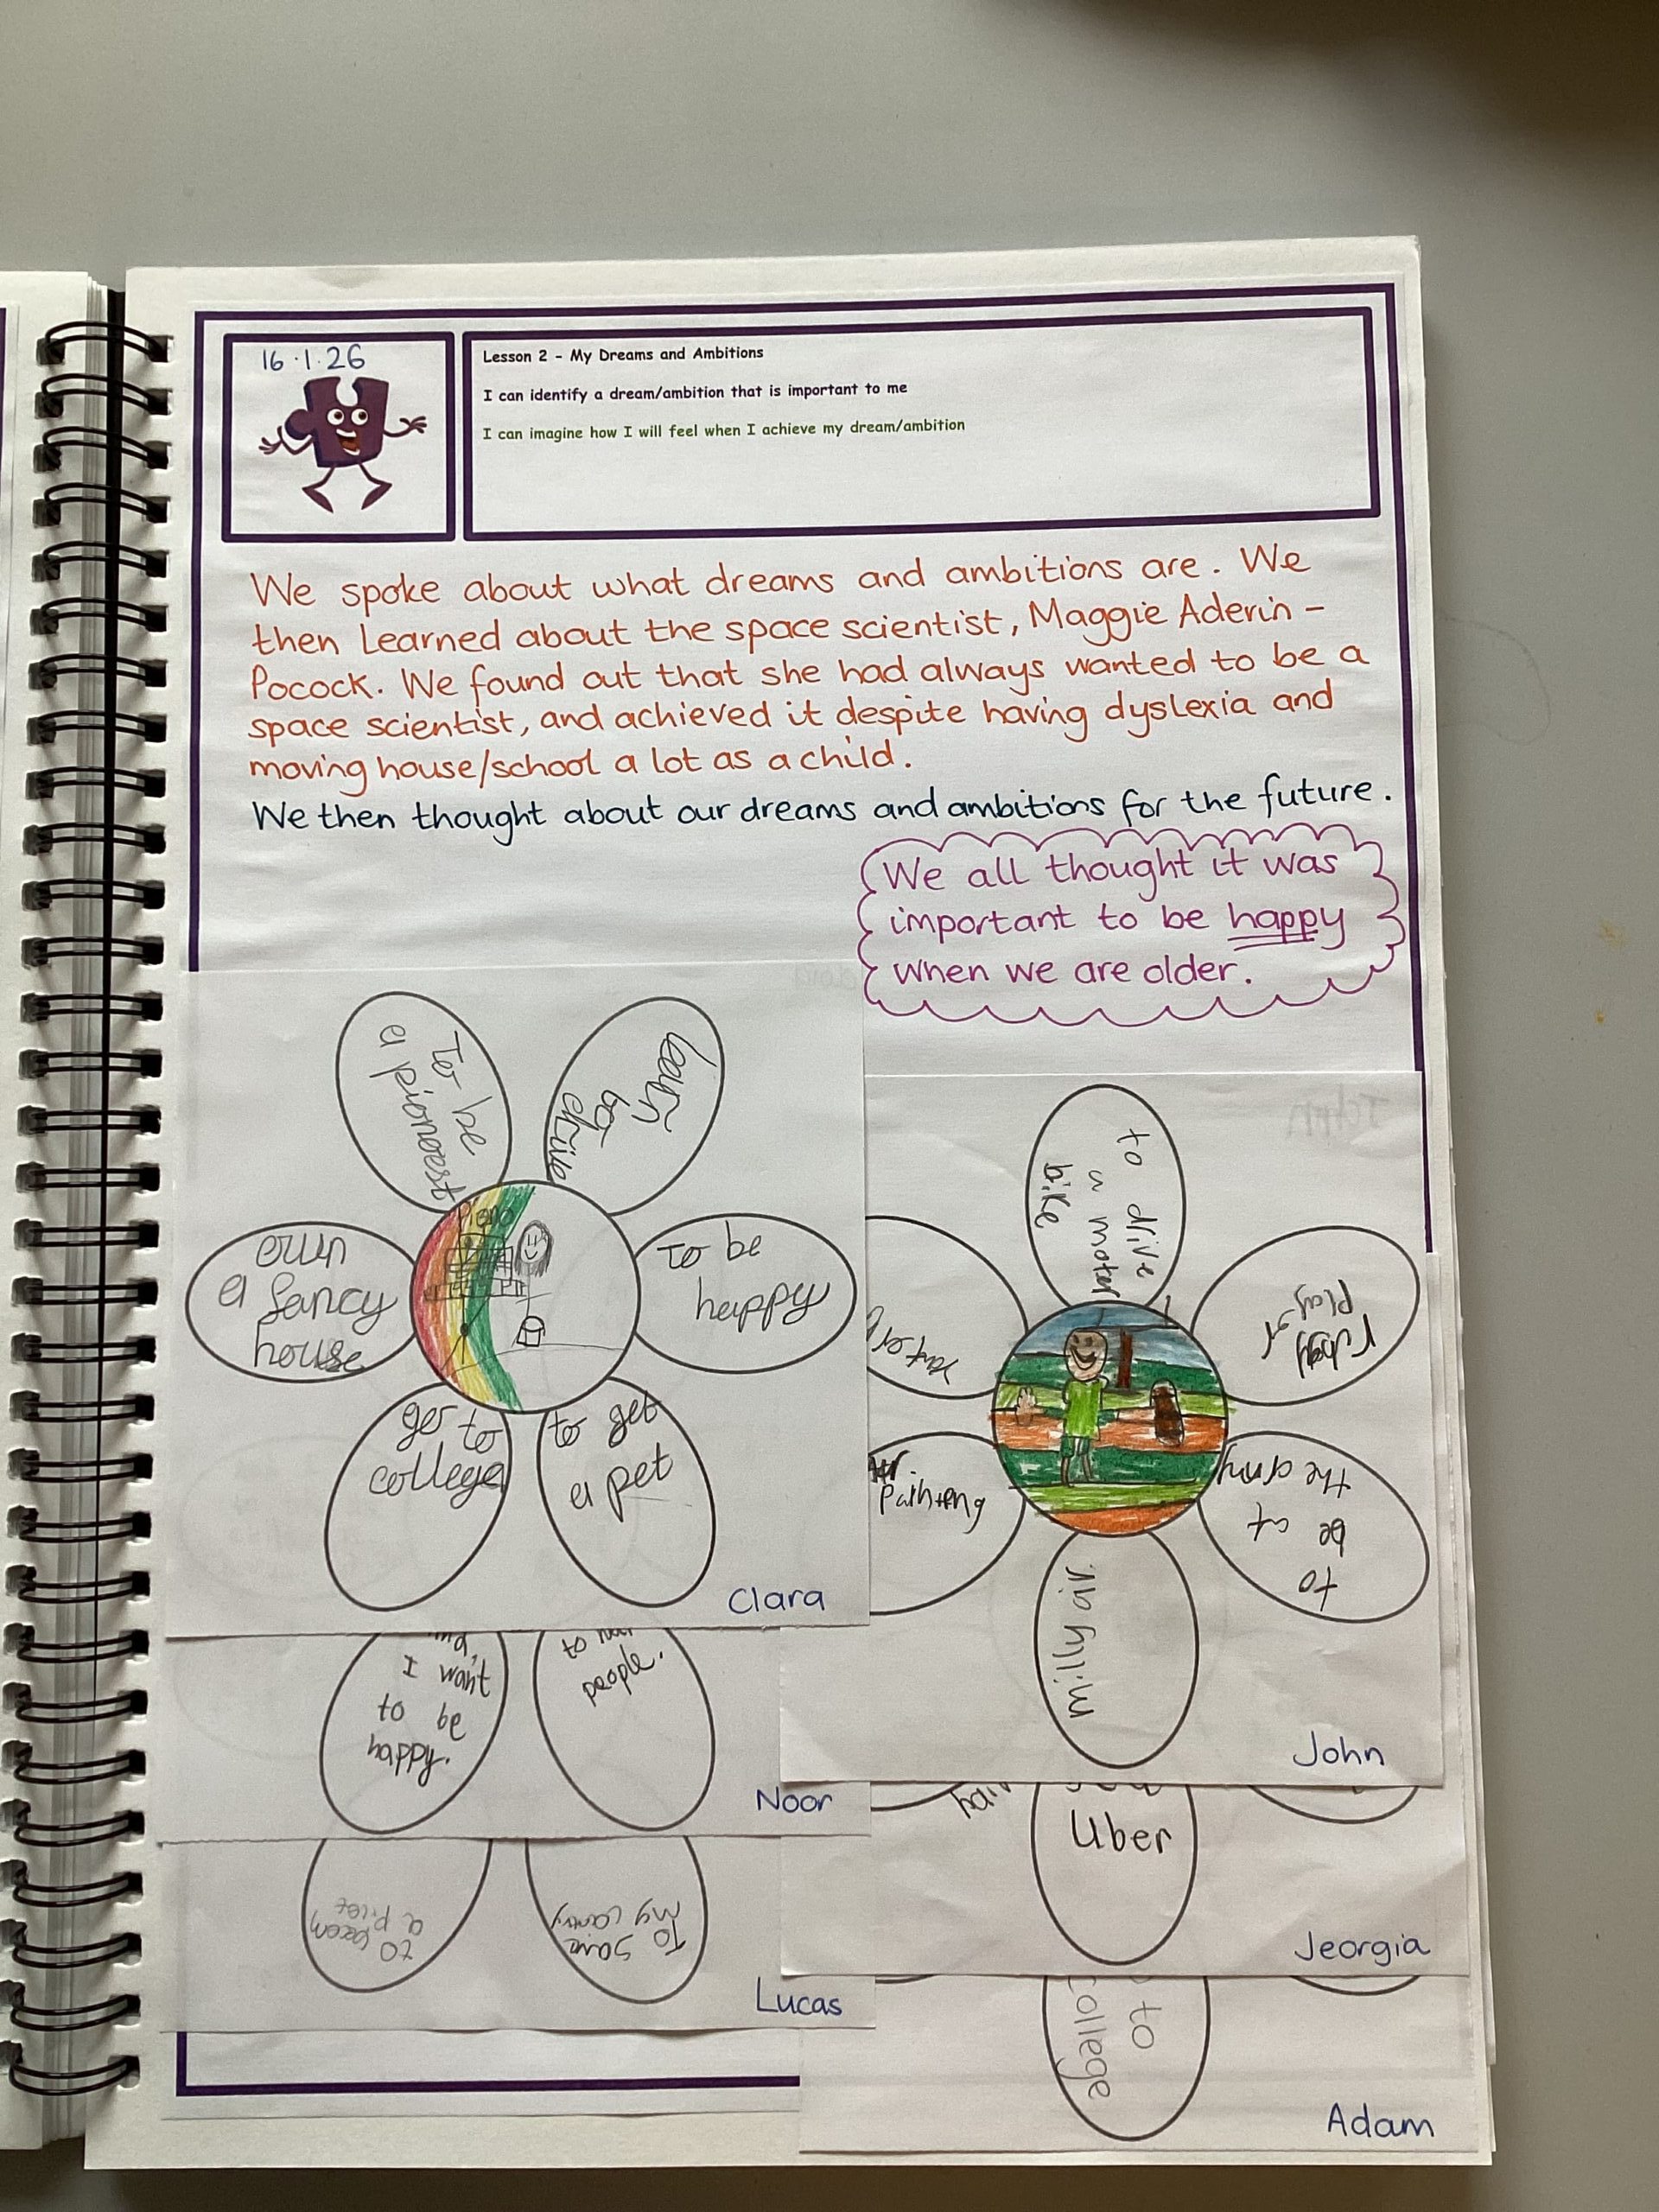 16.1.26
Lesson 2 - My Dreams and Ambitions
I can identify a dream/ambition that is important to me
I can imagine how I will feel when I achieve my dream/ambition
We spoke about what dreams and ambitions are. We
then learned about the space scientist, Maggie Aderin-
Pocock. We found out that she had always wanted to be a
space scientist, and achieved it despite having dyslexia and
moving house/school a lot as a child.
We then thought about our dreams and ambitions for the future.
We all thought it was
important to be happy
when we are older.
To be
a pionoest
learn
to be
happy
own
a fancy
house
Piano
go to
college
to get
a pet
Clara
to drive
a moter
bike
rugby
play
to
be
the army
John
I want
to be
happy.
people.
Noor
Uber
Jeorgia
a
to
To save
my
Lucas
to
college
Adam